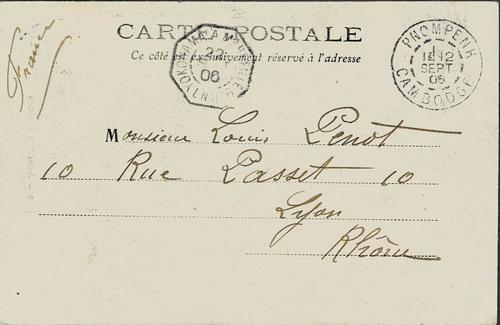 France
CARTE POSTALE
Ce côté est exclusivement réservé à l'adresse
22
06
PNOMPENH
12
SEPT
06
CAMBODGE
Monsieur Louis Penot
10 Rue Passet 10
Lyon
Rhône